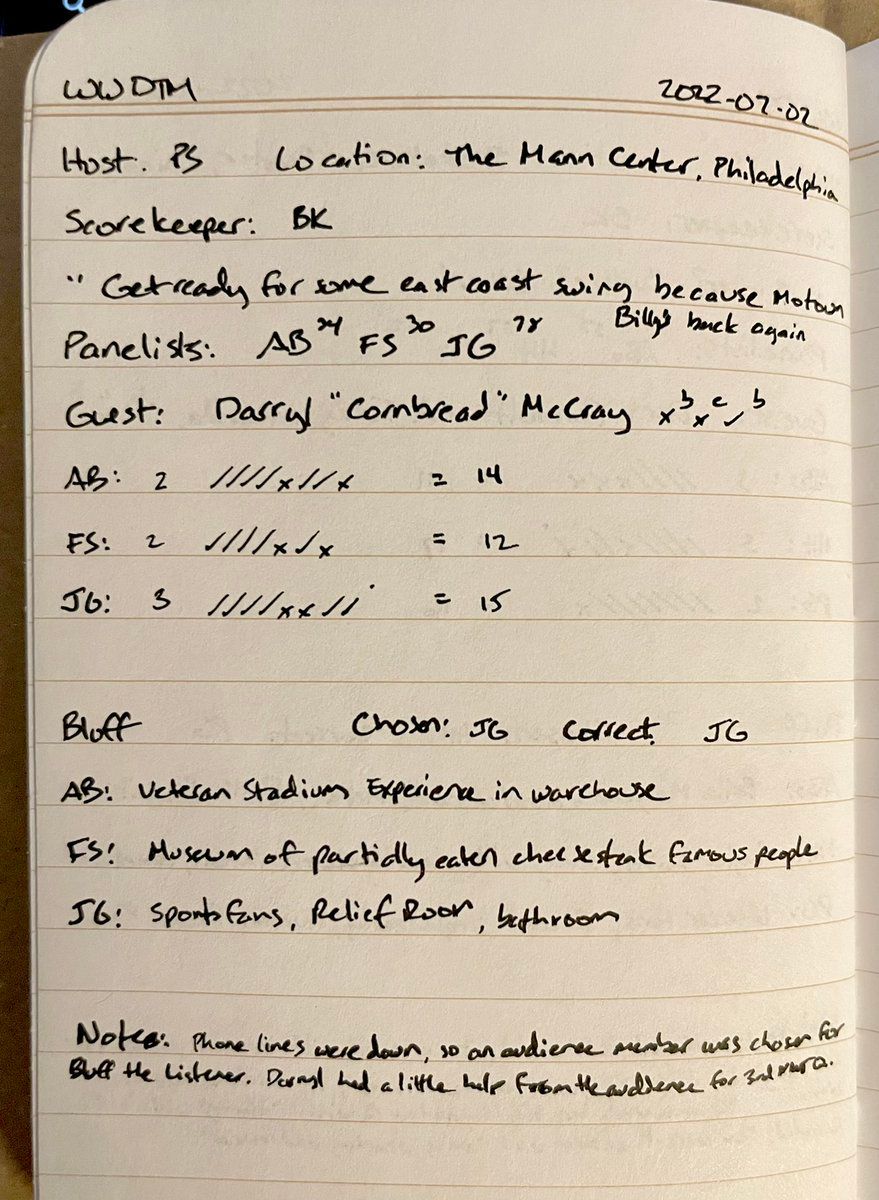 WWDTM 2022-07-02
Host: PS Location: The Mann Center, Philadelphia
Scorekeeper: BK
"Get ready for some east coast swing because Motown
Billy's back again
Panelists: AB FS 30 JG
Guest: Darryl "Cornbread" McCray x b x c ✓ b
AB: 2 ////x//x = 14
FS: 2 ////x/x = 12
JG: 3 ////xx// = 15
Bluff Chosen: JG Correct: JG
AB: Veteran Stadium Experience in warehouse
FS: Museum of partidly eaten cheesesteak famous people
JG: Sports fans, Relief Room, bathroom
Notes: Phone lines were down, so an audience member was chosen for
Bluff the Listener. Darryl had a little help from the audience for 3rd